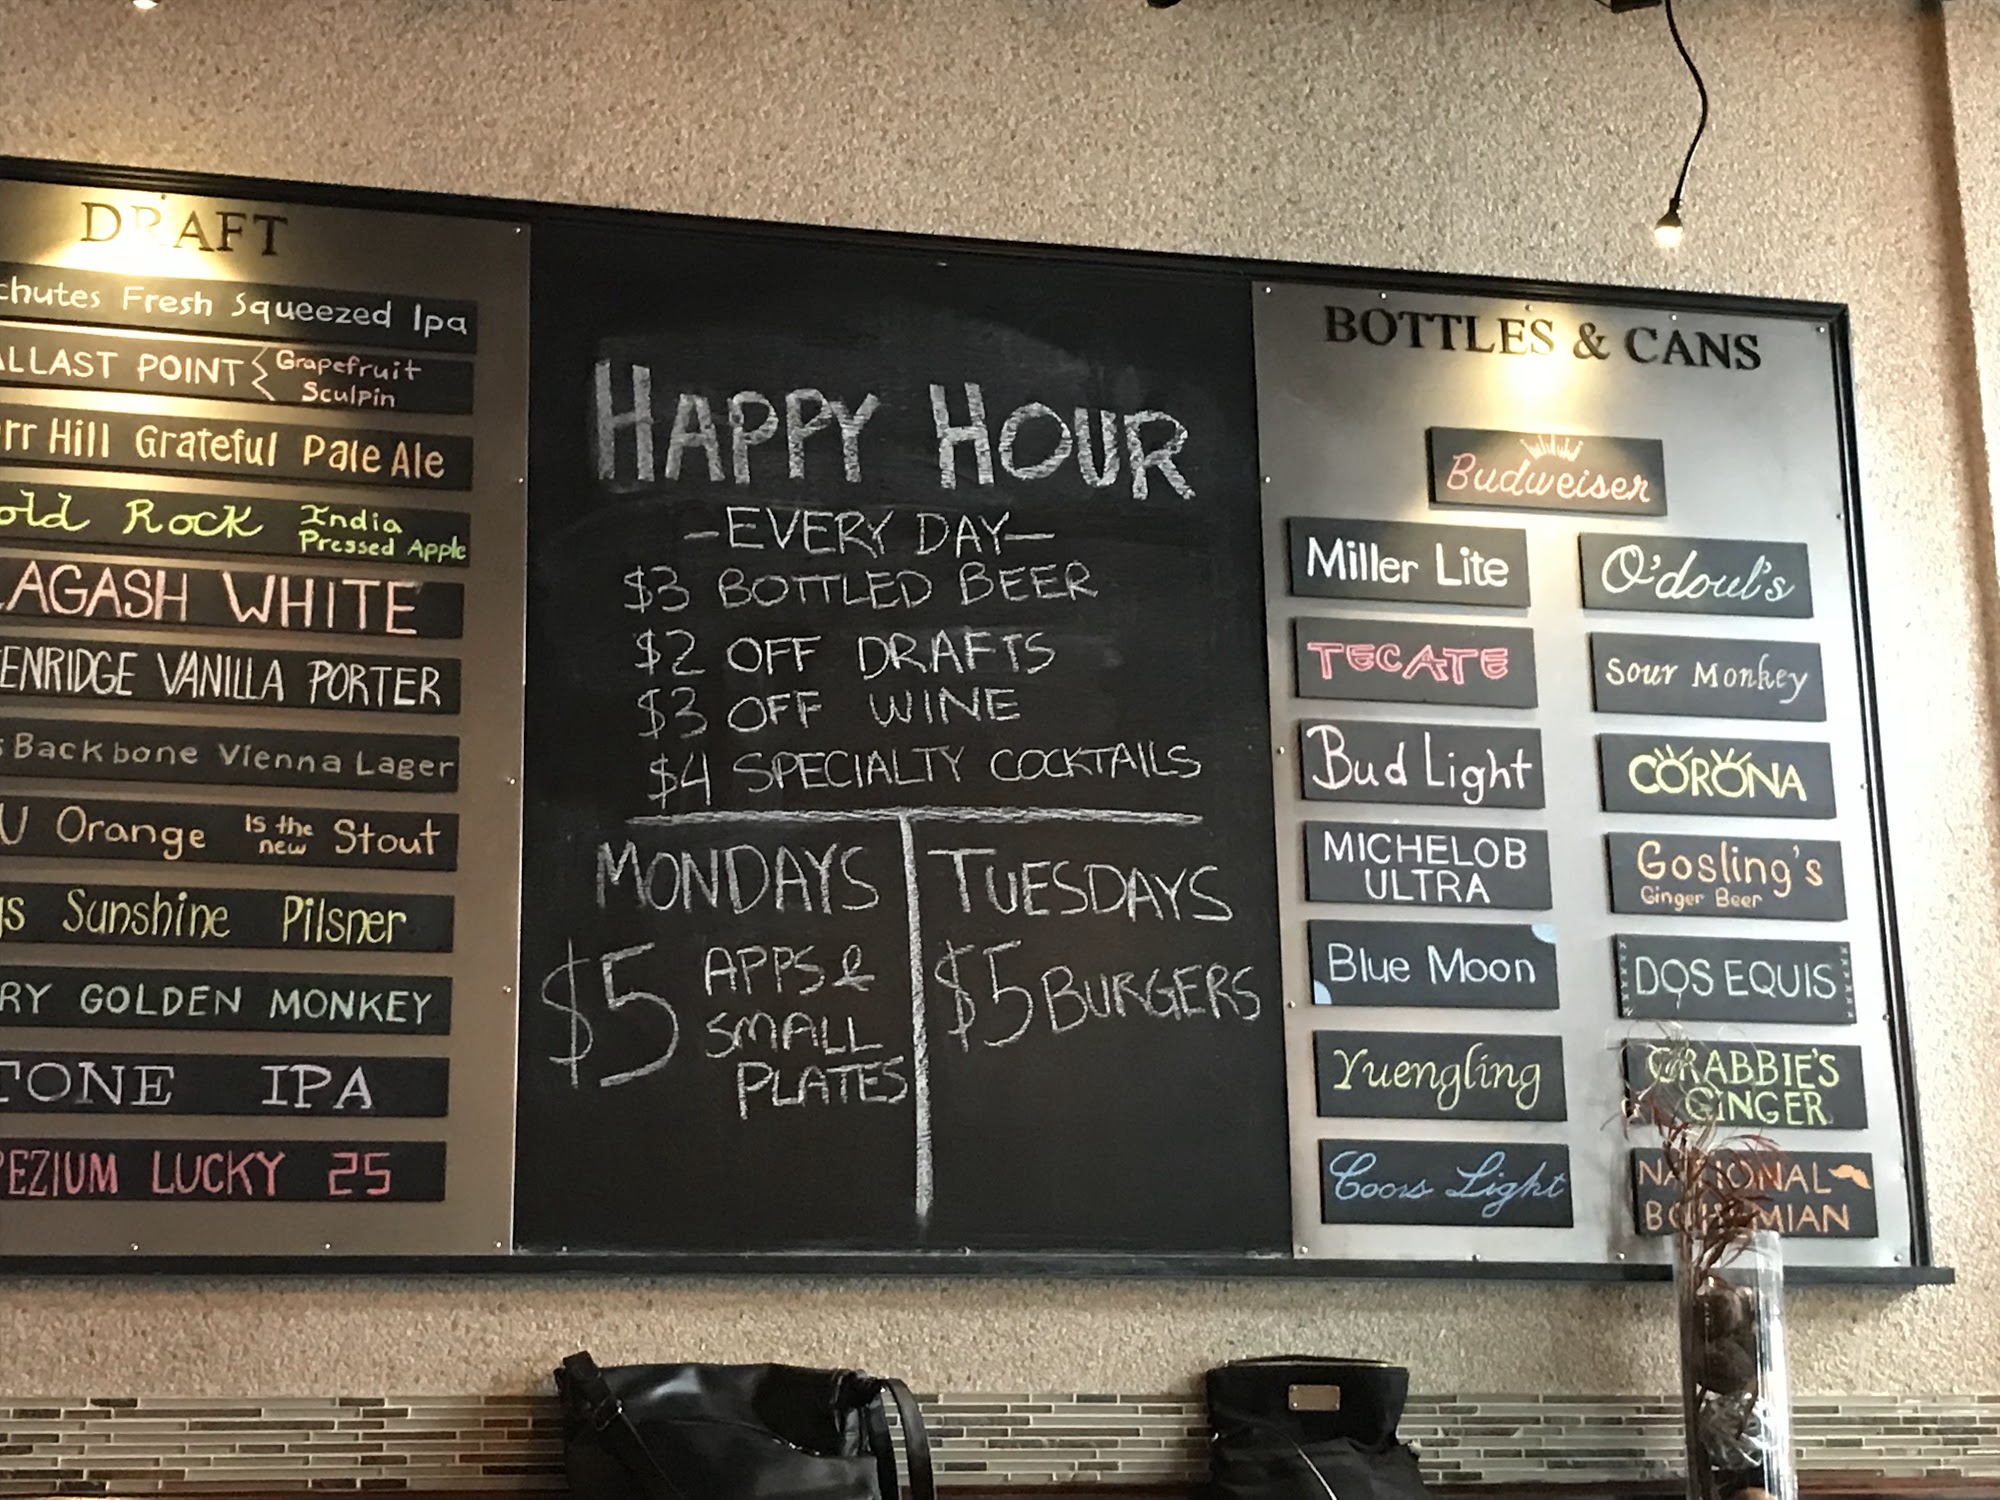 DRAFT
chutes Fresh Squeezed Ipa
ALLAST POINT Grapefruit
Sculpin
rr Hill Grateful Pale Ale
old Rock India
Pressed Apple
LAGASH WHITE
ENRIDGE VANILLA PORTER
s Backbone Vienna Lager
U Orange Is the new Stout
gs Sunshine Pilsner
RY GOLDEN MONKEY
TONE IPA
PEZIUM LUCKY 25
HAPPY HOUR
-EVERY DAY-
$3 BOTTLED BEER
$2 OFF DRAFTS
$3 OFF WINE
$4 SPECIALTY COCKTAILS
MONDAYS
$5 APPS &
SMALL
PLATES
TUESDAYS
$5 BURGERS
BOTTLES & CANS
Budweiser
Miller Lite
TECATE
Bud Light
MICHELOB
ULTRA
Blue Moon
Yuengling
Coors Light
O'doul's
Sour Monkey
CORONA
Gosling's
Ginger Beer
DOS EQUIS
CRABBIE'S
GINGER
NATIONAL
BOHEMIAN